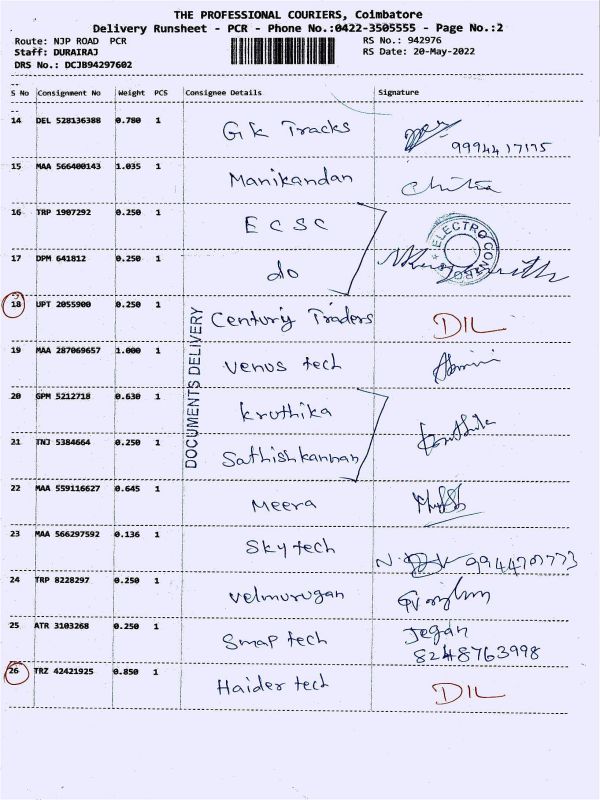 THE PROFESSIONAL COURIERS, Coimbatore
Delivery Runsheet - PCR - Phone No.:0422-3505555 - Page No.:2
Route: NJP ROAD PCR RS No.: 942976
Staff: DURAIRAJ RS Date: 20-May-2022
DRS No.: DCJB94297602
S No Consignment No Weight PCS Consignee Details Signature
14 DEL 528136388 0.780 1 GK Tracks
9994417175
15 MAA 566400143 1.035 1 Manikandan Chitra
16 TRP 1907292 0.250 1 ECSC
ELECTRO CONTROL
17 DPM 641812 0.250 1 do
18 UPT 2055900 0.250 1 Century Traders DIL
DOCUMENTS DELIVERY
19 MAA 287069657 1.000 1 Venus tech
20 GPM 5212718 0.630 1 Kruthika
21 TNJ 5384664 0.250 1 Sathishkannan
22 MAA 559116627 0.645 1 Meera
23 MAA 566297592 0.136 1 Skytech 9944707773
24 TRP 8228297 0.250 1 Velmurugan
25 ATR 3103268 0.250 1 Smap tech Jegan
8248763998
26 TRZ 42421925 0.850 1 Haider tech DIL